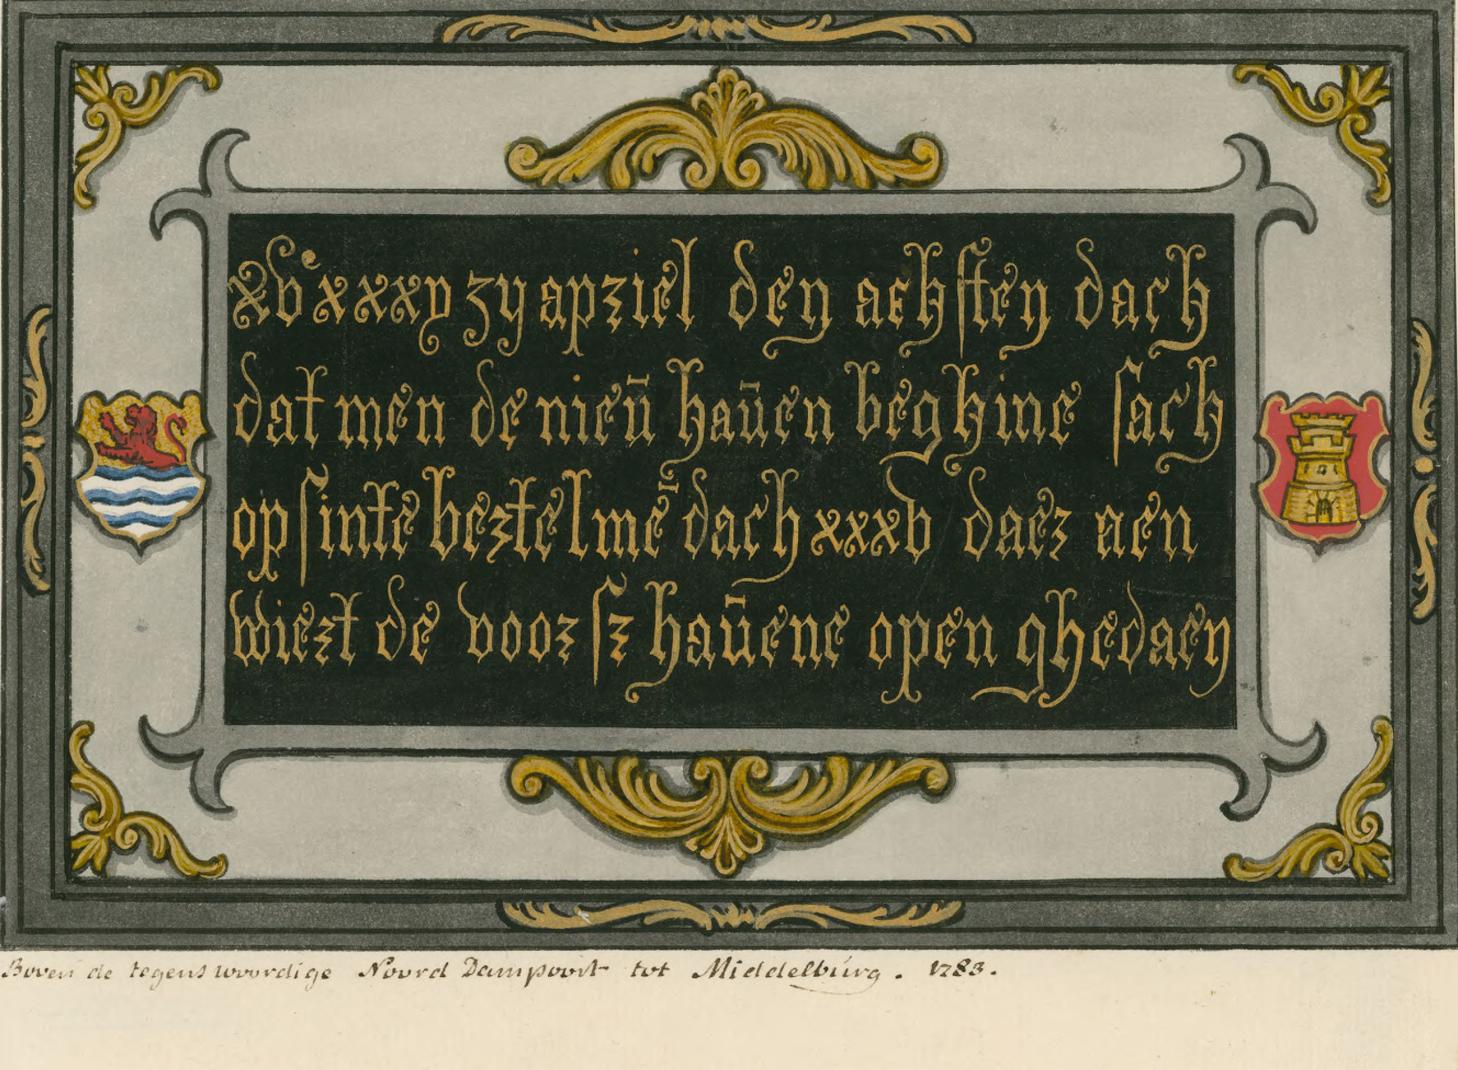 xvᶜ xxxij in apriel den achsten dach
dat men de nieū haūen beghine sach
op sinte bertelmeˢ dach xxxv daer aen
wiert de voor sz haūene open ghedaen
Boven de tegenswoordige Noord Dampoort tot Middelburg. 1783.